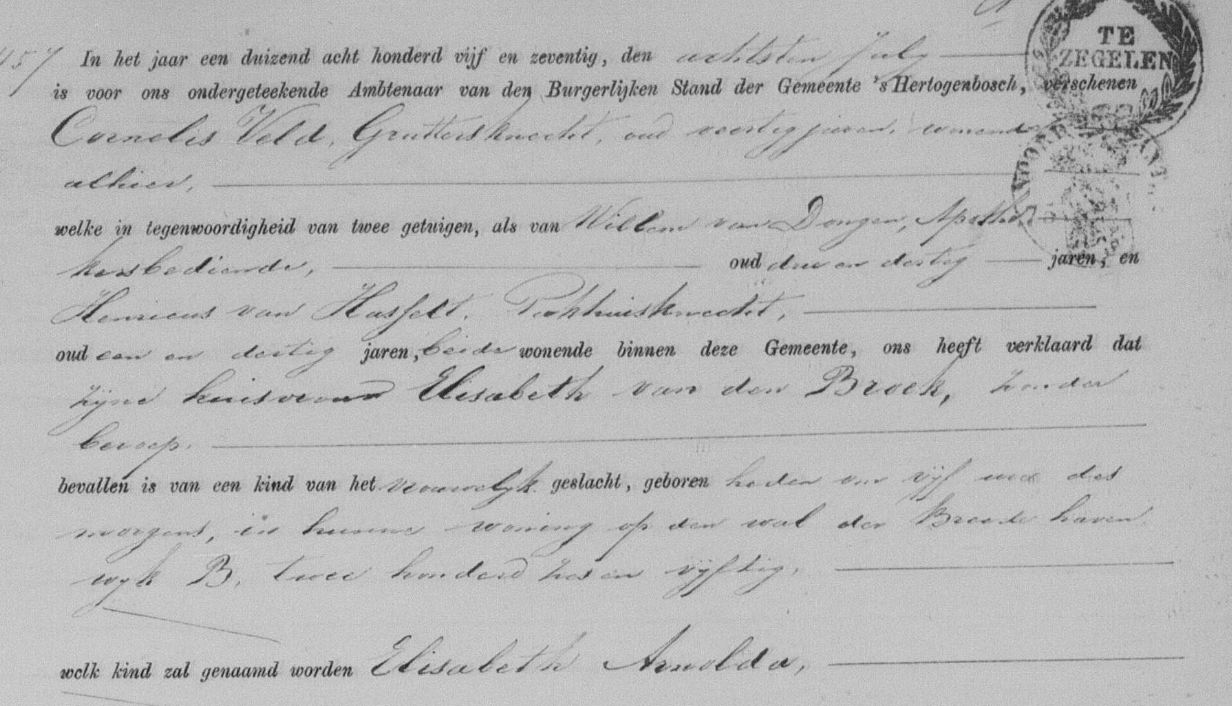 457 In het jaar een duizend acht honderd vijf en zeventig, den achtsten July
is voor ons ondergeteekende Ambtenaar van den Burgerlijken Stand der Gemeente 's Hertogenbosch, verschenen
Cornelis Veld, Gruttersknecht, oud veertig jaren, wonende
alhier,
welke in tegenwoordigheid van twee getuigen, als van Willem van Dongen, Apothe
kersbediende, oud drie en dertig jaren, en
Henricus van Hasselt, Pakhuisknecht,
oud een en dertig jaren, beide wonende binnen deze Gemeente, ons heeft verklaard dat
zijne huisvrouw Elisabeth van den Broek, zonder
beroep.
bevallen is van een kind van het vrouwelijk geslacht, geboren heden om vijf ure des
morgens, in hunne woning op den wal der Breede haven
wijk B, twee honderd zes en vijftig,
welk kind zal genaamd worden Elisabeth Arnolda,
TE
ZEGELEN
NOORD BRABANT